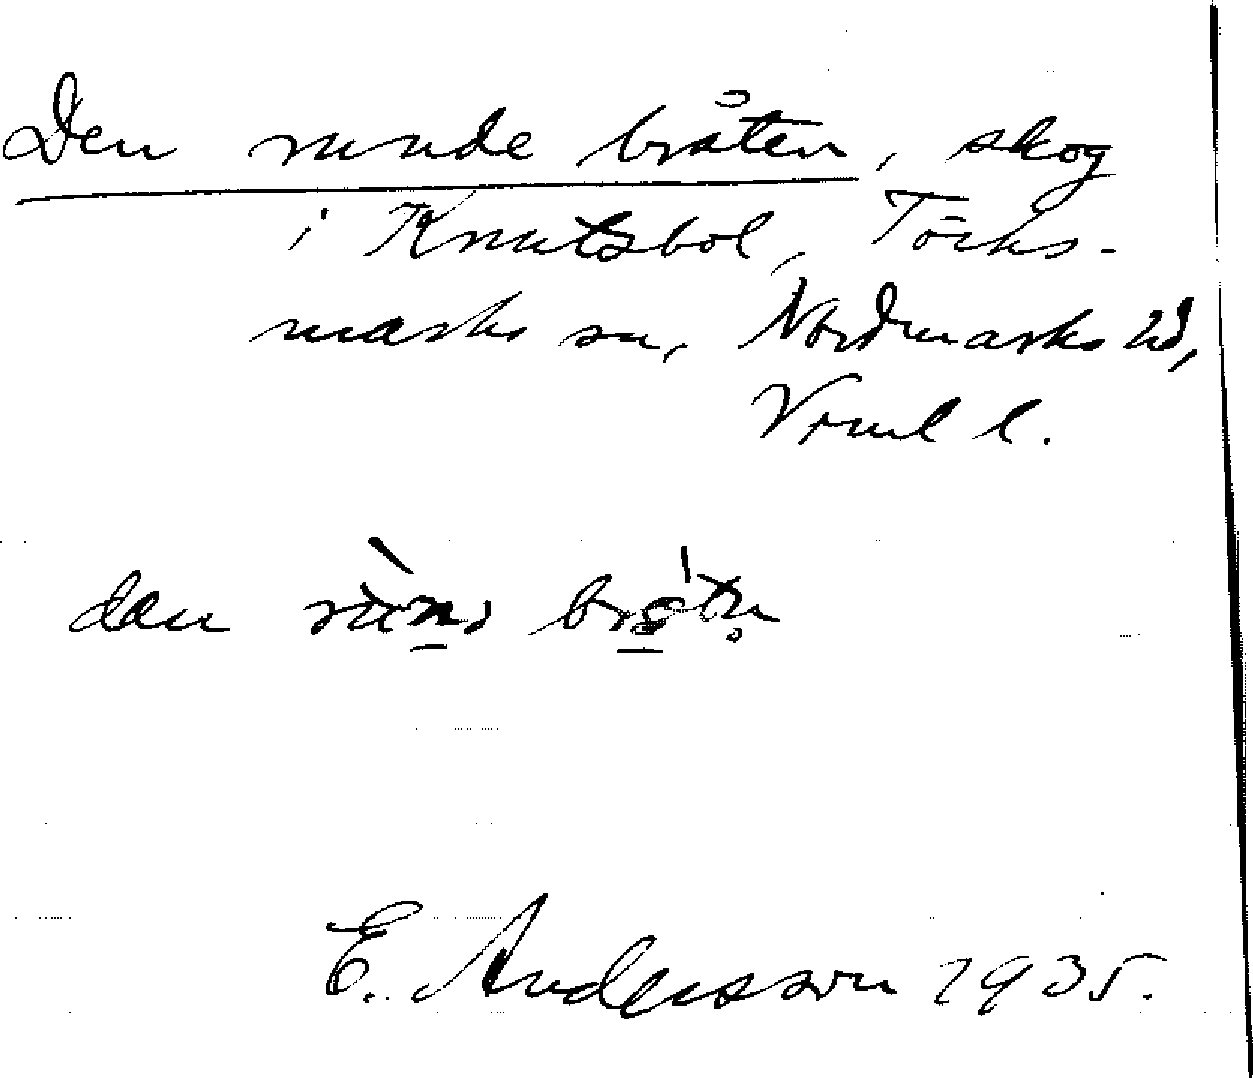 Den runde bråten, skog
i Knutsbol, Töcks-
marks sn, Nordmarks hd,
Vrml l.
E. Andersson 1935.